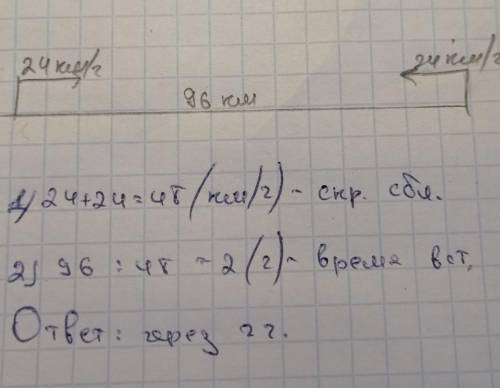 24 км/ч 24 км/ч
96 км
1) 24+24=48 (км/ч) - скр. сбл.
2) 96 : 48 = 2 (ч) - время вст,
Ответ: через 2 ч.